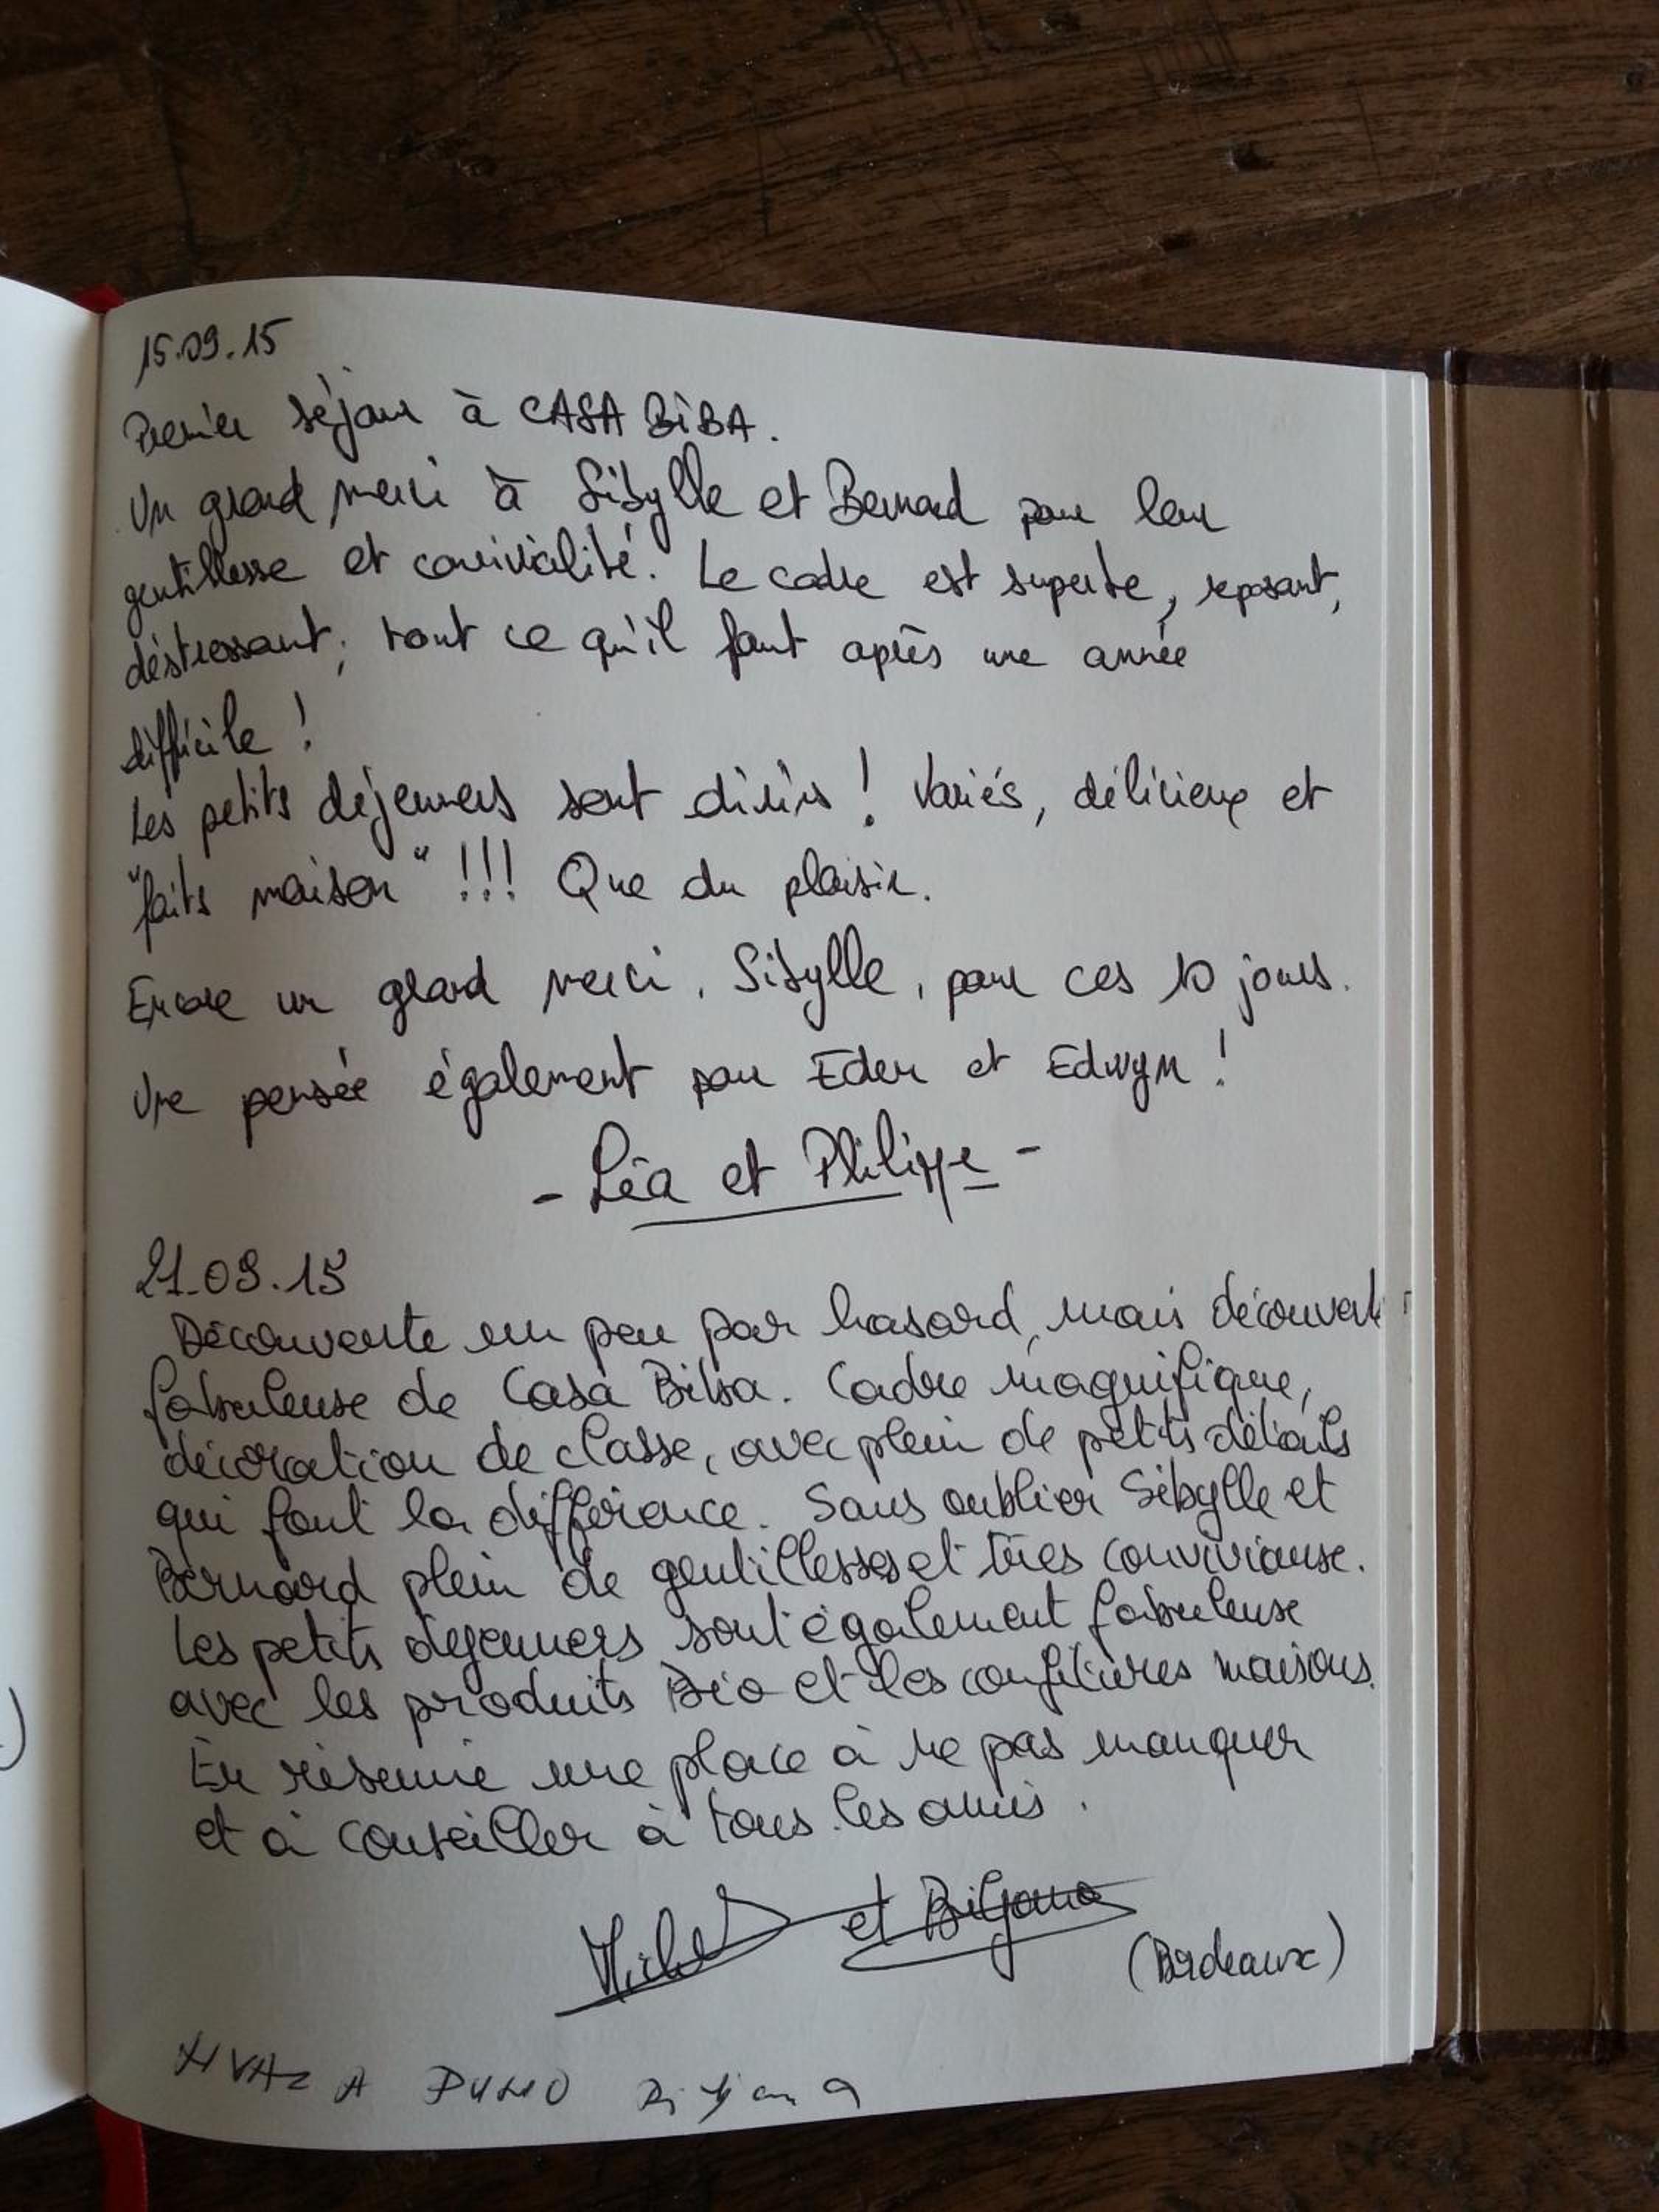 15.09.15
Premier séjour à CASA BIBA.
Un grand merci à Sibylle et Bernard pour leur
gentillesse et convivialité. Le cadre est superbe, reposant,
déstressant, tout ce qu'il faut après une année
difficile !
Les petits déjeuners sont divins ! Variés, délicieux et
"faits maison" !!! Que du plaisir.
Encore un grand merci, Sibylle, pour ces 10 jours.
Une pensée également pour Eden et Edwyn !
- Léa et Philippe -
21.09.15
Découverte un peu par hasard, mais découvert
fabuleuse de Casa Biba. Cadre magnifique,
décoration de classe, avec plein de petits détails
qui font la différence. Sans oublier Sibylle et
Bernard plein de gentillesses et très conviviause.
Les petits dejeuners sont également fabuleuse
avec les produits Bio et les confitures maisons.
En résumé une place à ne pas manquer
et à conseiller à tous les amis.
Michel et Biljana
(Bordeaux)
HVALA PUNO Biljana